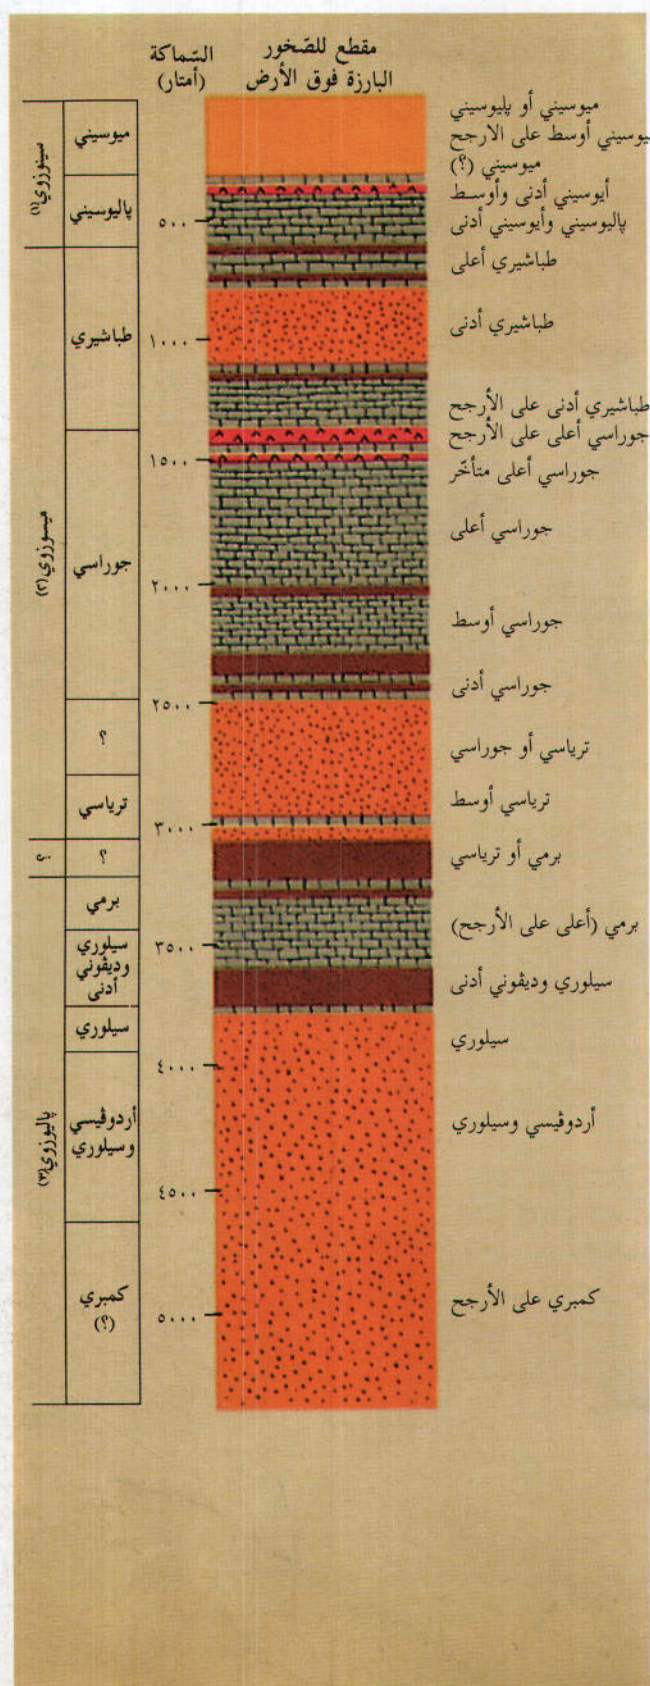 مقطع للصّخور
البارزة فوق الأرض
السّماكة
(أمتار)
ميوسيني أو پليوسيني
يوسيني أوسط على الارجح
ميوسيني (؟)
أيوسيني أدنى وأوسط
پاليوسيني وأيوسيني أدنى
طباشيري أعلى
طباشيري أدنى
طباشيري أدنى على الأرجح
جوراسي أعلى على الأرجح
جوراسي أعلى متأخّر
جوراسي أعلى
جوراسي أوسط
جوراسي أدنى
ترياسي أو جوراسي
ترياسي أوسط
برمي أو ترياسي
برمي (أعلى على الأرجح)
سيلوري وديڤوني أدنى
سيلوري
أردوڤيسي وسيلوري
كمبري على الأرجح
٥٠٠
١٠٠٠
١٥٠٠
٢٠٠٠
٢٥٠٠
٣٠٠٠
٣٥٠٠
٤٠٠٠
٤٥٠٠
٥٠٠٠
ميوسيني
پاليوسيني
طباشيري
جوراسي
؟
ترياسي
؟
برمي
سيلوري
وديڤوني
أدنى
سيلوري
أردوڤيسي
وسيلوري
كمبري
(؟)
سينوزوي (١)
ميسوزوي (٢)
؟
پاليوزوي (٣)